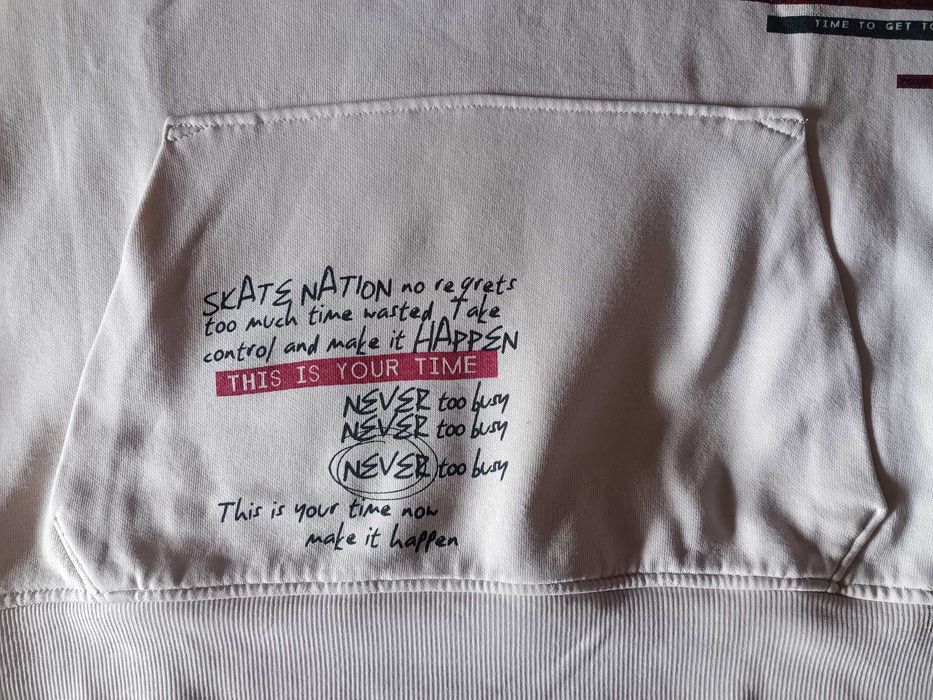 TIME TO GET TO
SKATE NATION no regrets
too much time wasted Take
control and make it HAPPEN
THIS IS YOUR TIME
NEVER too busy
NEVER too busy
NEVER too busy
This is your time now
make it happen